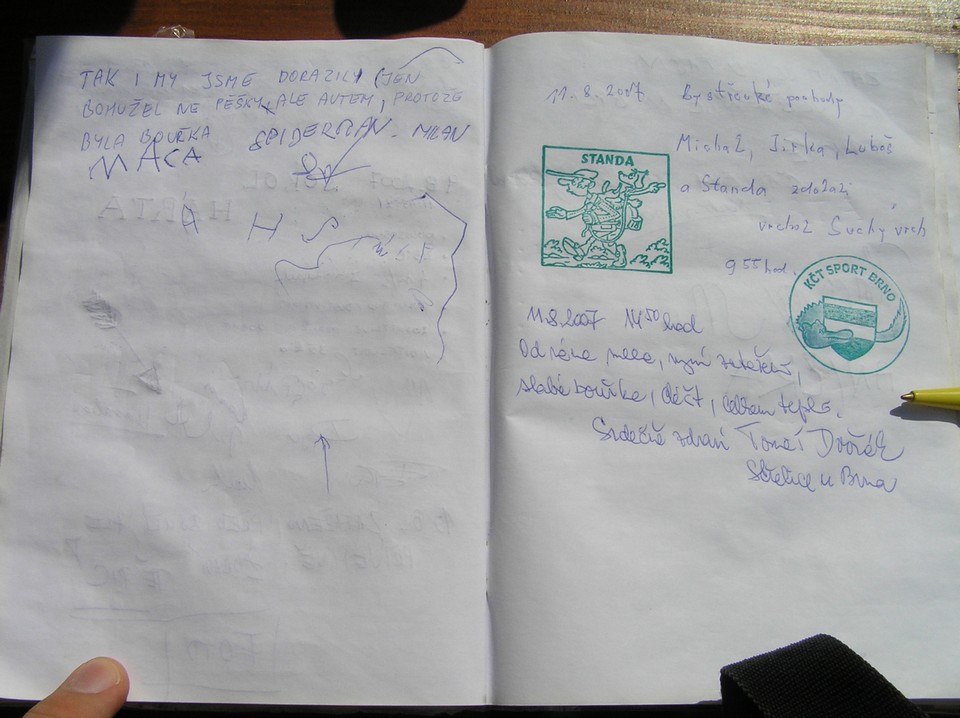 TAK I MY JSME DORAZILY (JEN
BOHUŽEL NE PĚŠKY, ALE AUTEM, PROTOŽE
BYLA BOUŘKA SPIDERMAN. MILAN
MÁCA
A H
11. 8. 2007 Bystřické pochody
Michal, Jirka, Luboš
a Standa zdolali
vrchol Suchý vrch
9 55 hod.
STANDA
KČT SPORT BRNO
11.8.2007 14 50 hod
Od rána
slabá bouřka, déšť, celkem teplo.
Srdečně zdraví Tomáš Dvořák
Střelice u Brna